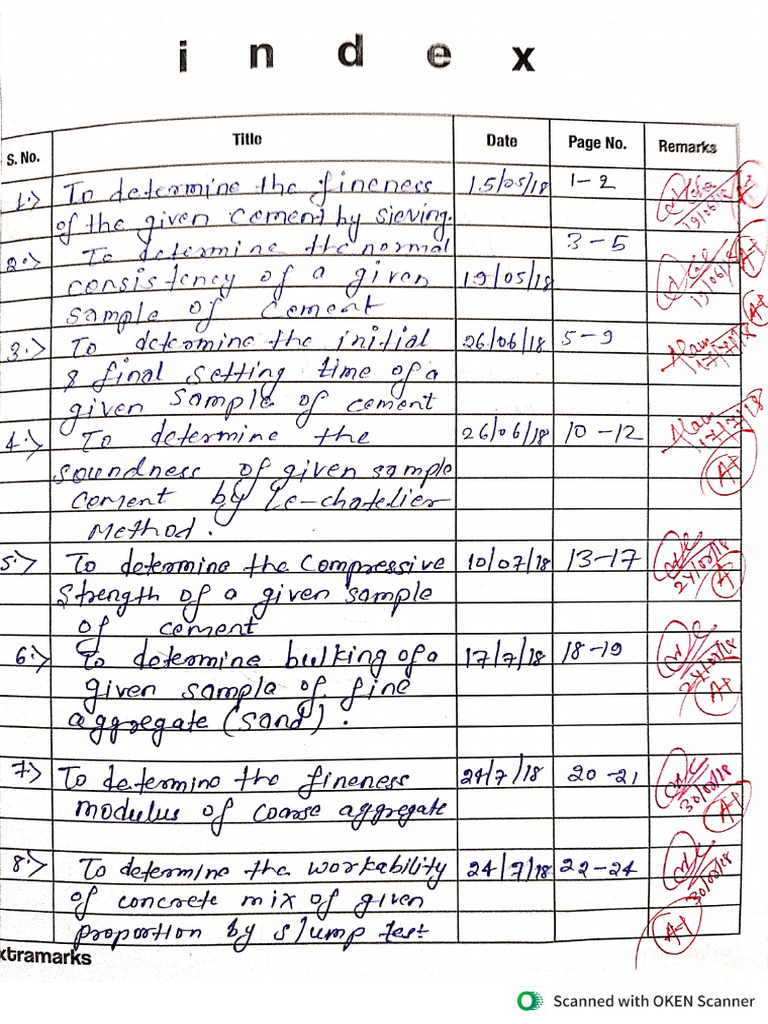 index
S. No. Title Date Page No. Remarks
1.) To determine the fineness 15/05/18 1-2
of the given cement by sieving.
2.) To determine the normal 3-5
consistency of a given 19/05/18
sample of cement
3.) To determine the initial 26/06/18 5-9
& final setting time of a
given sample of cement
4.) To determine the 26/06/18 10-12
soundness of given sample
cement by Le-chatelier
Method.
5.) To determine the compressive 10/07/18 13-17
strength of a given sample
of cement
6.) To determine bulking of a 17/7/18 18-19
given sample of fine
aggregate (sand).
7.) To determine the fineness 24/7/18 20-21
modulus of coarse aggregate
8.) To determine the workability 24/7/18 22-24
of concrete mix of given
proportion by slump test
xtramarks
Scanned with OKEN Scanner